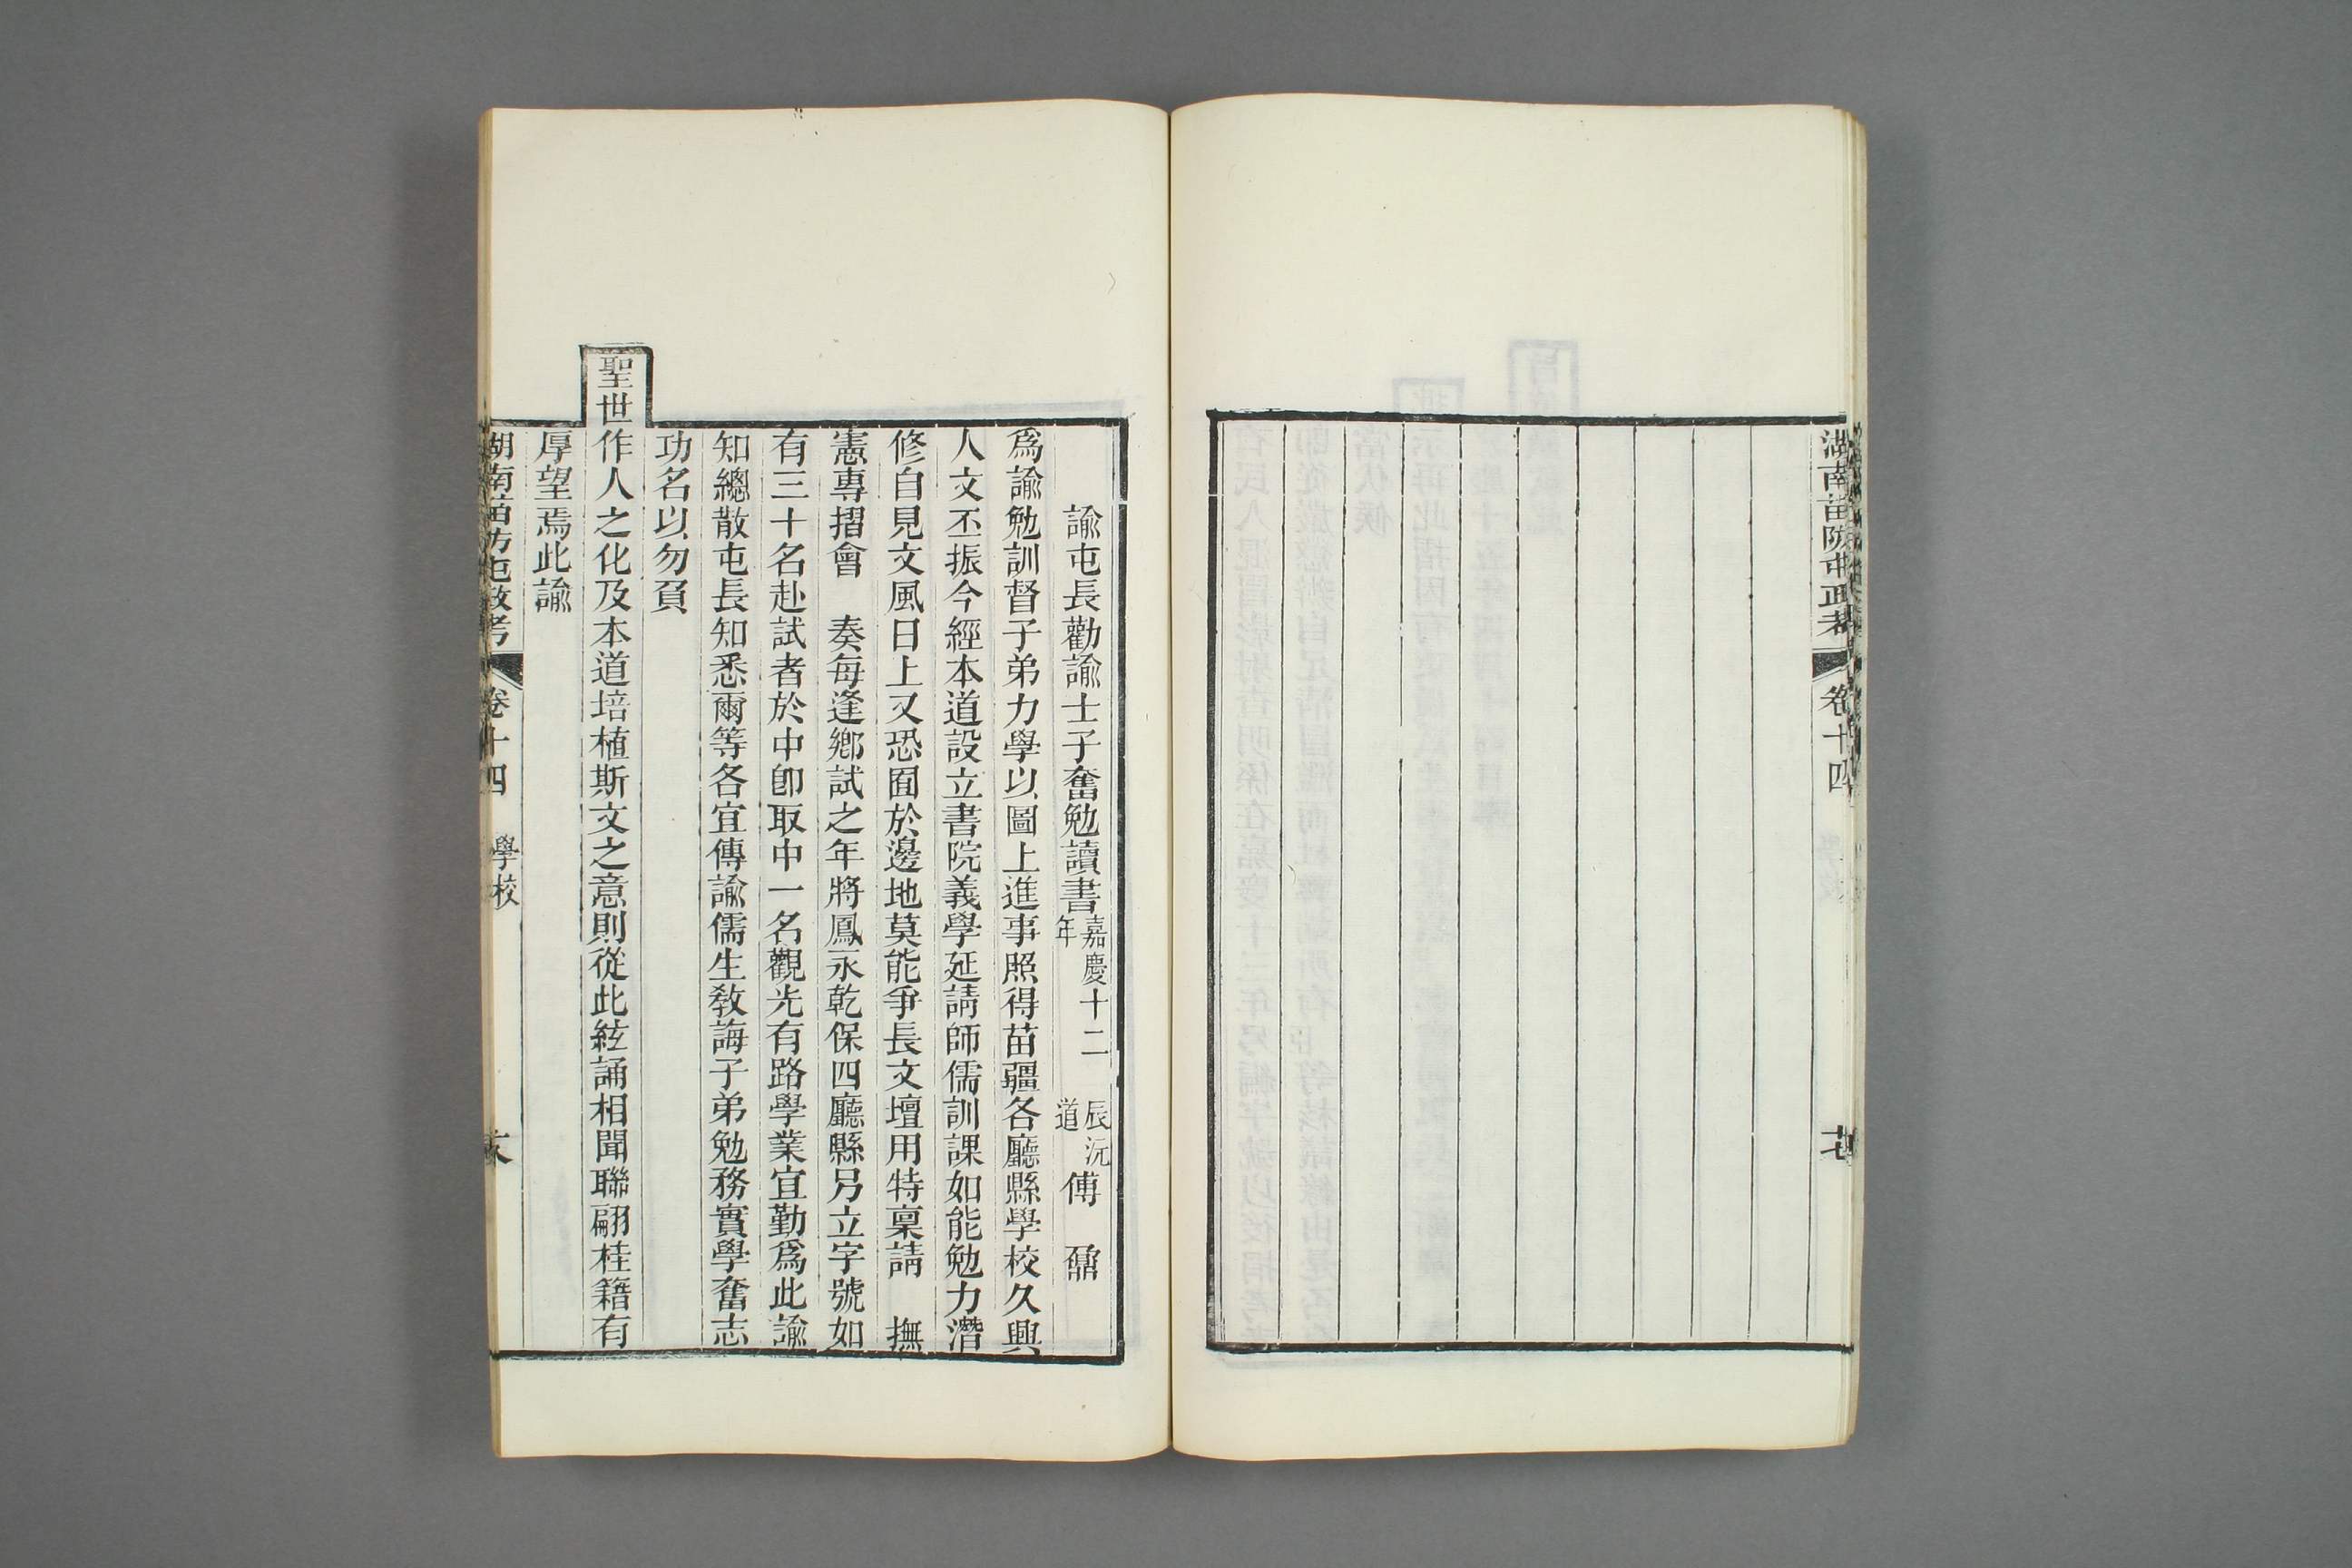 湖南苗防屯政考 卷十四
諭屯長勸諭士子奮勉讀書嘉慶十二年 辰沅道傅 鼐
爲諭勉訓督子弟力學以圖上進事照得苗疆各廳縣學校久興
人文丕振今經本道設立書院義學延請師儒訓課如能勉力潛
修自見文風日上又恐囿於邊地莫能爭長文壇用特稟請 撫
憲專摺會 奏每逢鄉試之年將鳳永乾保四廳縣另立字號如
有三十名赴試者於中卽取中一名觀光有路學業宜勤爲此諭
知總散屯長知悉爾等各宜傳諭儒生敎誨子弟勉務實學奮志
功名以勿負
聖世作人之化及本道培植斯文之意則從此絃誦相聞聯翩桂籍有
厚望焉此諭
湖南苗防屯政考 卷十四 學校